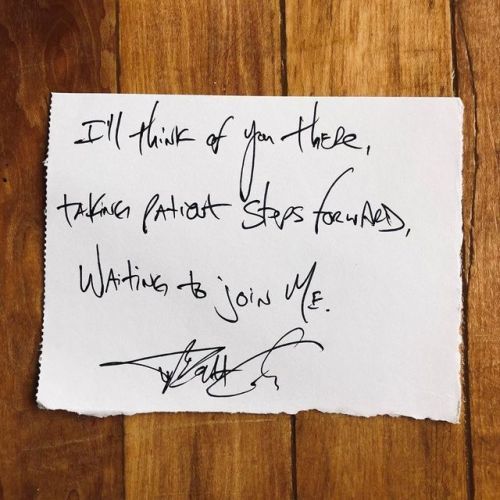 I'll think of you there,
taking patient steps forward,
waiting to join me.